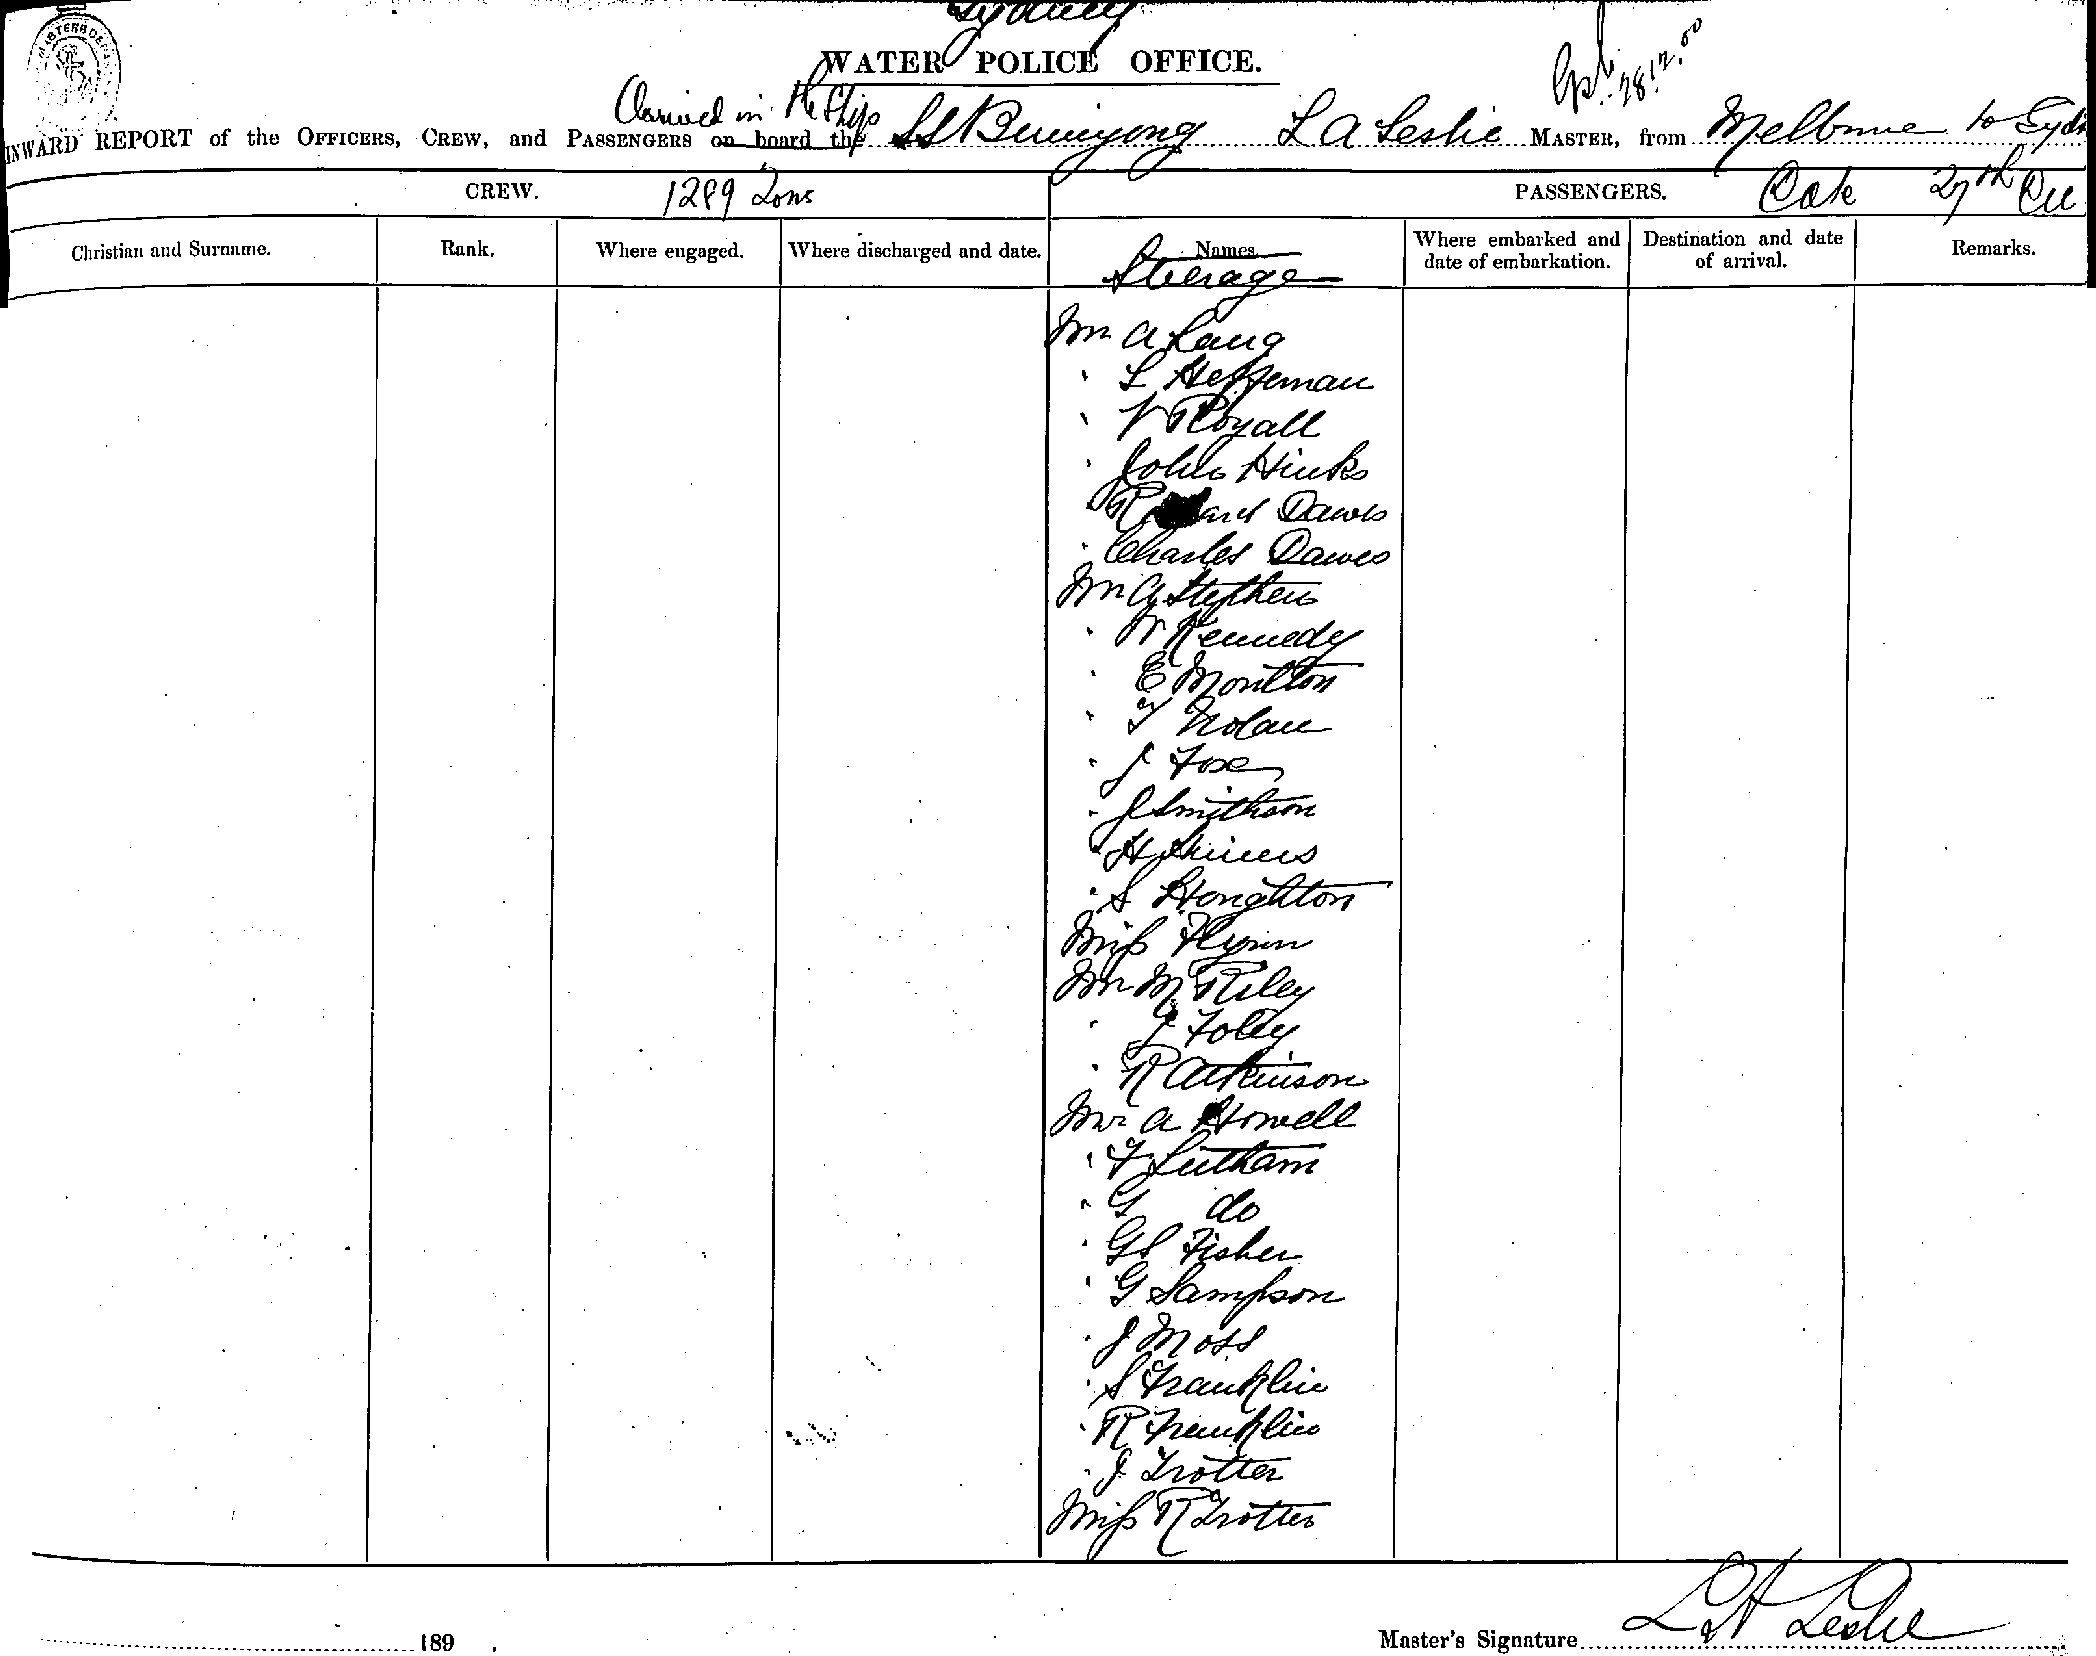 Sydney
WATER POLICE OFFICE.
28.12.00
Arrived in the Ships
INWARD REPORT of the OFFICERS, CREW, and PASSENGERS on board the SS Buninyong L A Leslie MASTER, from Melbourne to Sydn
CREW. 1289 Tons PASSENGERS. Date 27th Dec
Christian and Surname. Rank. Where engaged. Where discharged and date. Names. Where embarked and date of embarkation. Destination and date of arrival. Remarks.
Steerage
Mr A Lang
" L Heffernan
" V Royall
" John Hinks
" Dawes
" Charles Dawes
Mr A Stephens
" W Kennedy
" E Moulton
" T Nolan
" J Fox
" J Smithson
" H
" S Houghton
Miss Flynn
Mr M Riley
" J Foley
" R Atkinson
Mr A Howell
" F
" G do
" GS Fisher
" G Sampson
" J Moss
" S Franklin
" R Franklin
" J Trotter
Miss R Trotter
189
Master's Signature L A Leslie